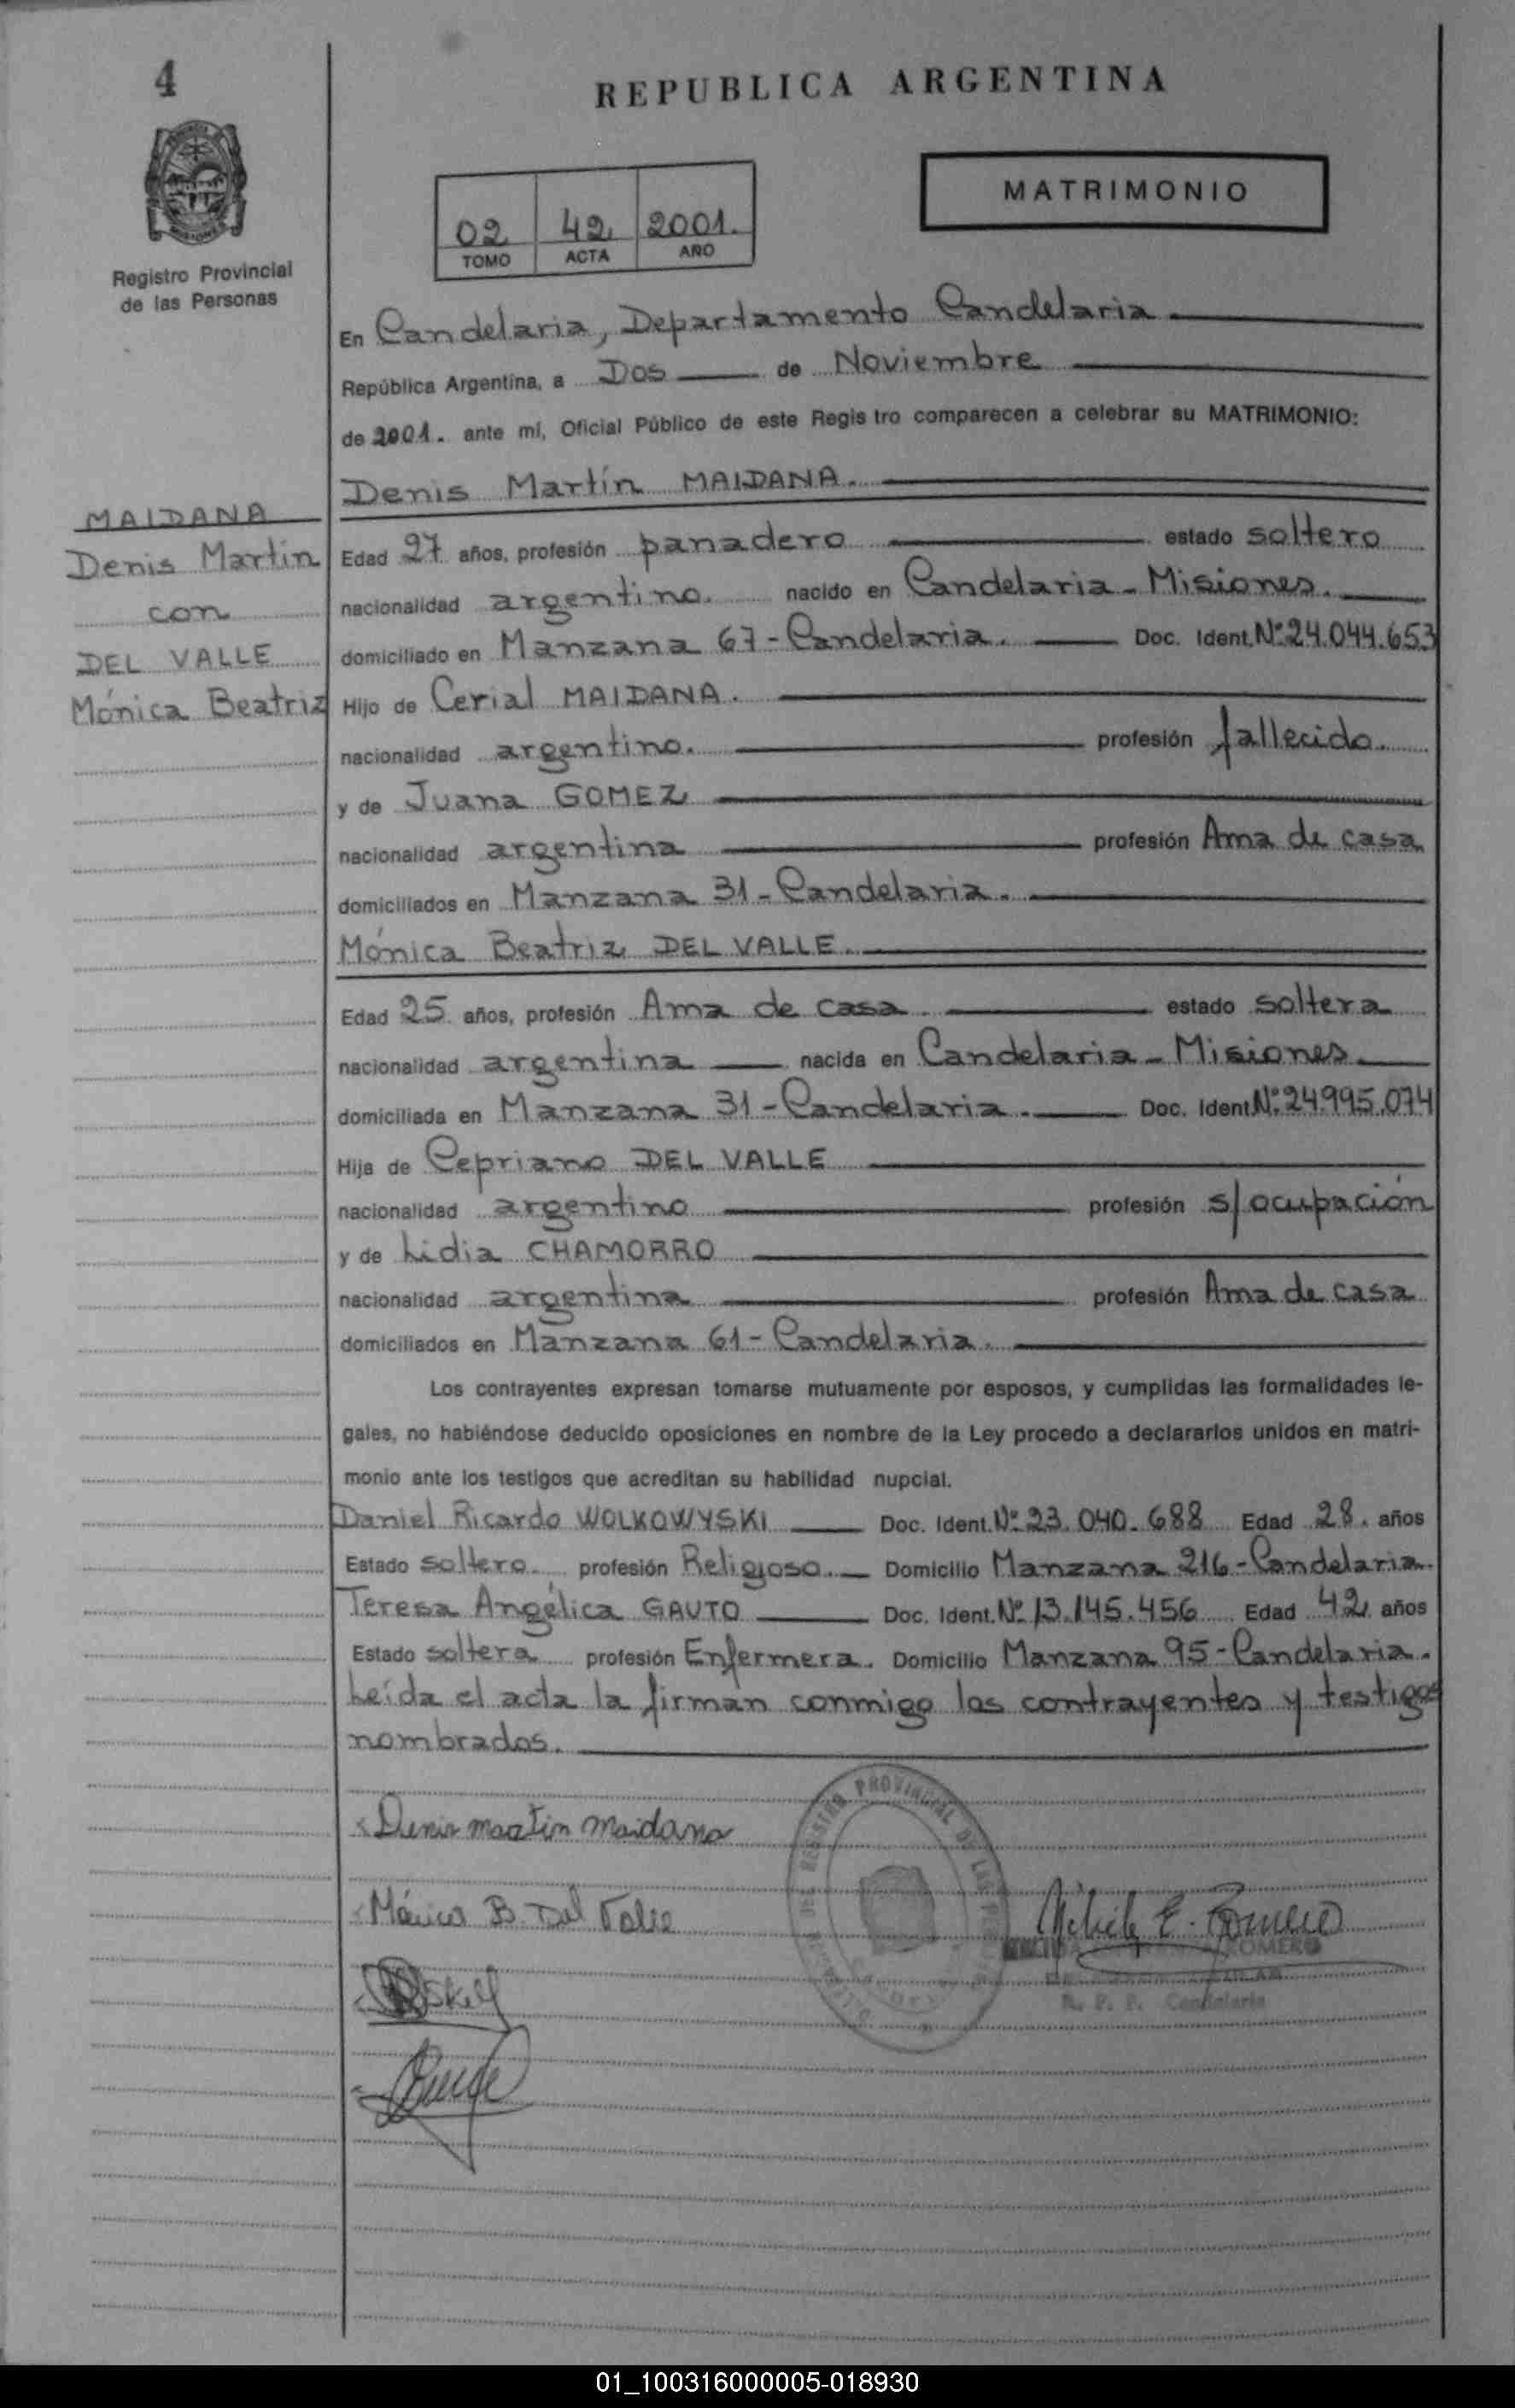 4
REPUBLICA ARGENTINA
MATRIMONIO
02 42 2001.
TOMO ACTA AÑO
Registro Provincial
de las Personas
En Candelaria, Departamento Candelaria
República Argentina, a Dos de Noviembre
de 2001. ante mí, Oficial Público de este Regis tro comparecen a celebrar su MATRIMONIO:
Denis Martín MAIDANA.
MAIDANA
Denis Martín
con
DEL VALLE
Mónica Beatriz
Edad 27 años, profesión panadero estado soltero
nacionalidad argentino. nacido en Candelaria - Misiones.
domiciliado en Manzana 67 - Candelaria. Doc. Ident. Nº 24.044.653
Hijo de Cerial MAIDANA.
nacionalidad argentino. profesión fallecido.
y de Juana GOMEZ
nacionalidad argentina profesión Ama de casa
domiciliados en Manzana 31 - Candelaria.
Mónica Beatriz DEL VALLE.
Edad 25 años, profesión Ama de casa estado soltera
nacionalidad argentina nacida en Candelaria - Misiones
domiciliada en Manzana 31 - Candelaria. Doc. Ident. Nº 24.995.074
Hija de Cepriano DEL VALLE
nacionalidad argentino profesión s/ocupación
y de Lidia CHAMORRO
nacionalidad argentina profesión Ama de casa
domiciliados en Manzana 61 - Candelaria.
Los contrayentes expresan tomarse mutuamente por esposos, y cumplidas las formalidades le-
gales, no habiéndose deducido oposiciones en nombre de la Ley procedo a declararlos unidos en matri-
monio ante los testigos que acreditan su habilidad nupcial.
Daniel Ricardo WOLKOWYSKI Doc. Ident. Nº 23.040.688 Edad 28. años
Estado soltero. profesión Religioso. Domicilio Manzana 216 - Candelaria.
Teresa Angélica GAUTO Doc. Ident. Nº 13.145.456 Edad 42 años
Estado soltera profesión Enfermera. Domicilio Manzana 95 - Candelaria.
Leída el acta la firman conmigo los contrayentes y testigos
nombrados.
Denis martin maidana
REGISTRO PROVINCIAL DE LAS
Mónica B. Del Valle
E. Romero
ROMERO
R. P. P. Candelaria
01_100316000005-018930